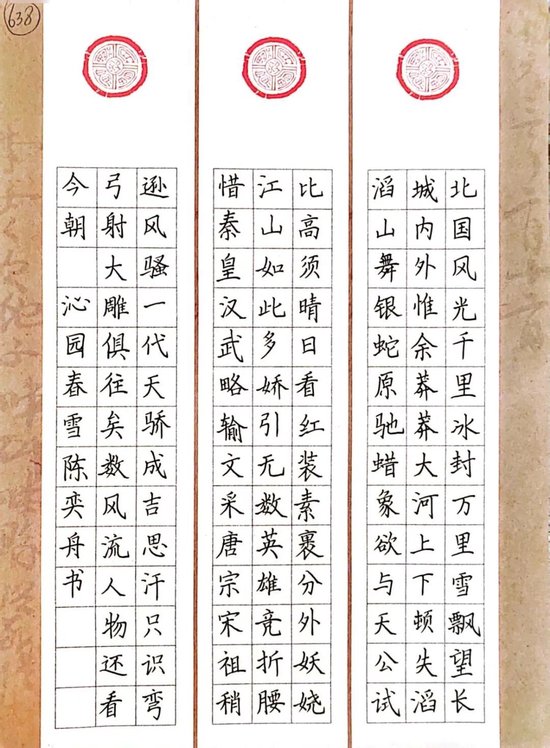 638
北国风光千里冰封万里雪飘望长
城内外惟余莽莽大河上下顿失滔
滔山舞银蛇原驰蜡象欲与天公试
比高须晴日看红装素裹分外妖娆
江山如此多娇引无数英雄竞折腰
惜秦皇汉武略输文采唐宗宋祖稍
逊风骚一代天骄成吉思汗只识弯
弓射大雕俱往矣数风流人物还看
今朝 沁园春雪陈奕舟书